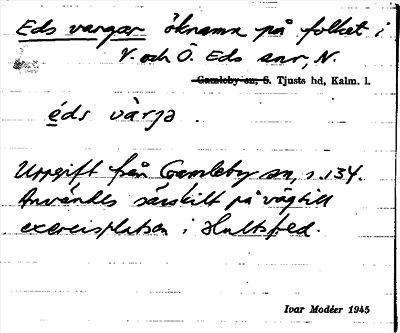 Eds vargar öknamn på folket i
V. och Ö. Eds snr, N.
Gamleby sn, S. Tjusts hd, Kalm. l.
éds vàrja.
Uppgift från Gamleby sn, s. 134.
Användes särskilt på väg till
exercisplatsen i Hultsfred.
Ivar Modéer 1945